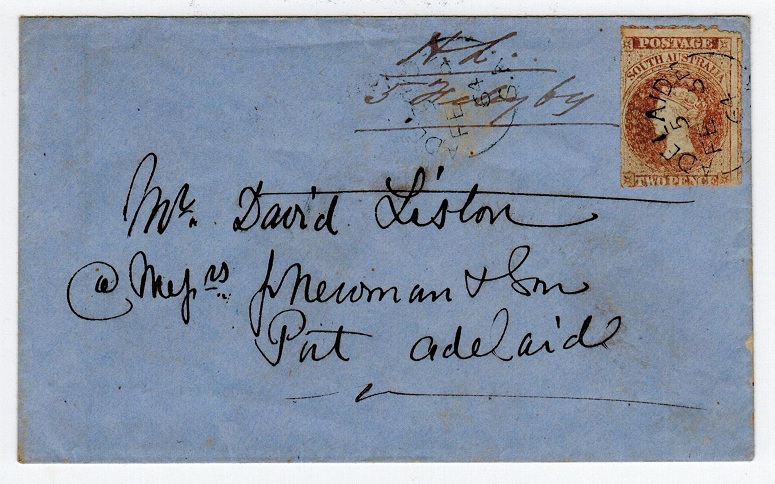 POSTAGE
SOUTH AUSTRALIA
TWO PENCE
ADELAIDE
FE 5
64
Mr. David Liston
@ Messrs J Newman & Son
Port Adelaide